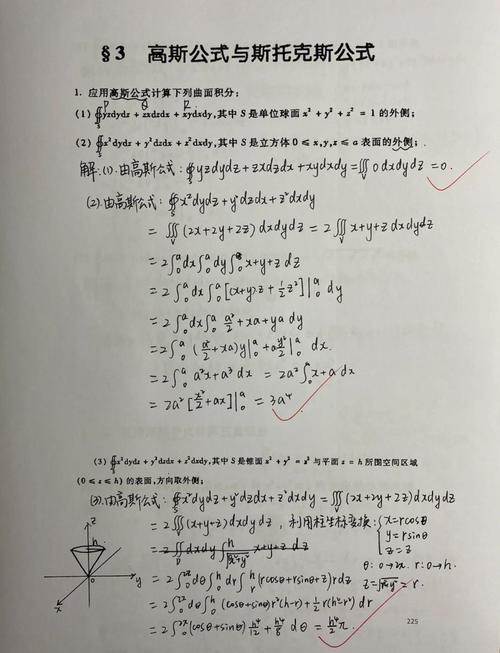 §3 高斯公式与斯托克斯公式
1. 应用高斯公式计算下列曲面积分:
P Q R
(1) ∯yzdydz + zxdzdx + xydxdy,其中 S 是单位球面 x² + y² + z² = 1 的外侧;
S
(2) ∯x²dydz + y²dzdx + z²dxdy,其中 S 是立方体 0 ≤ x,y,z ≤ a 表面的外侧;
S
解:(1).由高斯公式: ∯ yzdydz+zxdzdx+xydxdy=∭ 0dxdydz=0.
S V
(2).由高斯公式: ∯x²dydz+y²dzdx+z²dxdy
S
= ∭(2x+2y+2z)dxdydz = 2∭x+y+z dxdydz
V V
= 2∫₀ᵃdx∫₀ᵃdy∫₀ᵃx+y+z dz
= 2∫₀ᵃdx∫₀ᵃ[(x+y)z+½z²]|₀ᵃ dy
= 2∫₀ᵃdx∫₀ᵃ a²/2+xa+ya dy
= 2∫₀ᵃ (a²/2+xa)y|₀ᵃ+a y²/2|₀ᵃ dx.
= 2∫₀ᵃ a²x+a³ dx = 2a²∫₀ᵃx+a dx
= 2a²[x²/2+ax]|₀ᵃ = 3a⁴
(3) ∯x²dydz + y²dzdx + z²dxdy,其中 S 是锥面 x² + y² = z² 与平面 z = h 所围空间区域
S
(0 ≤ z ≤ h) 的表面,方向取外侧;
(3).由高斯公式: ∯x²dydz+y²dzdx+z²dxdy=∭(2x+2y+2z)dxdydz
S V
= 2∭(x+y+z)dxdydz , 利用柱坐标变换: { x=rcosθ
V y=rsinθ
z=z
= 2∬dxdy∫ʰ√(x²+y²) x+y+z dz
D
θ: 0→2π. r: 0→h.
= 2∫₀²πdθ∫₀ʰdr∫ᵣʰ(rcosθ+rsinθ+z)rdz z=√(x²+y²)=r.
= 2∫₀²πdθ∫₀ʰ (cosθ+sinθ)r²(h-r)+½r(h²-r²)dr
= 2∫₀²π(cosθ+sinθ)h⁴/12+h⁴/8 dθ = h⁴/2 π.
z
h
0
y
x
225